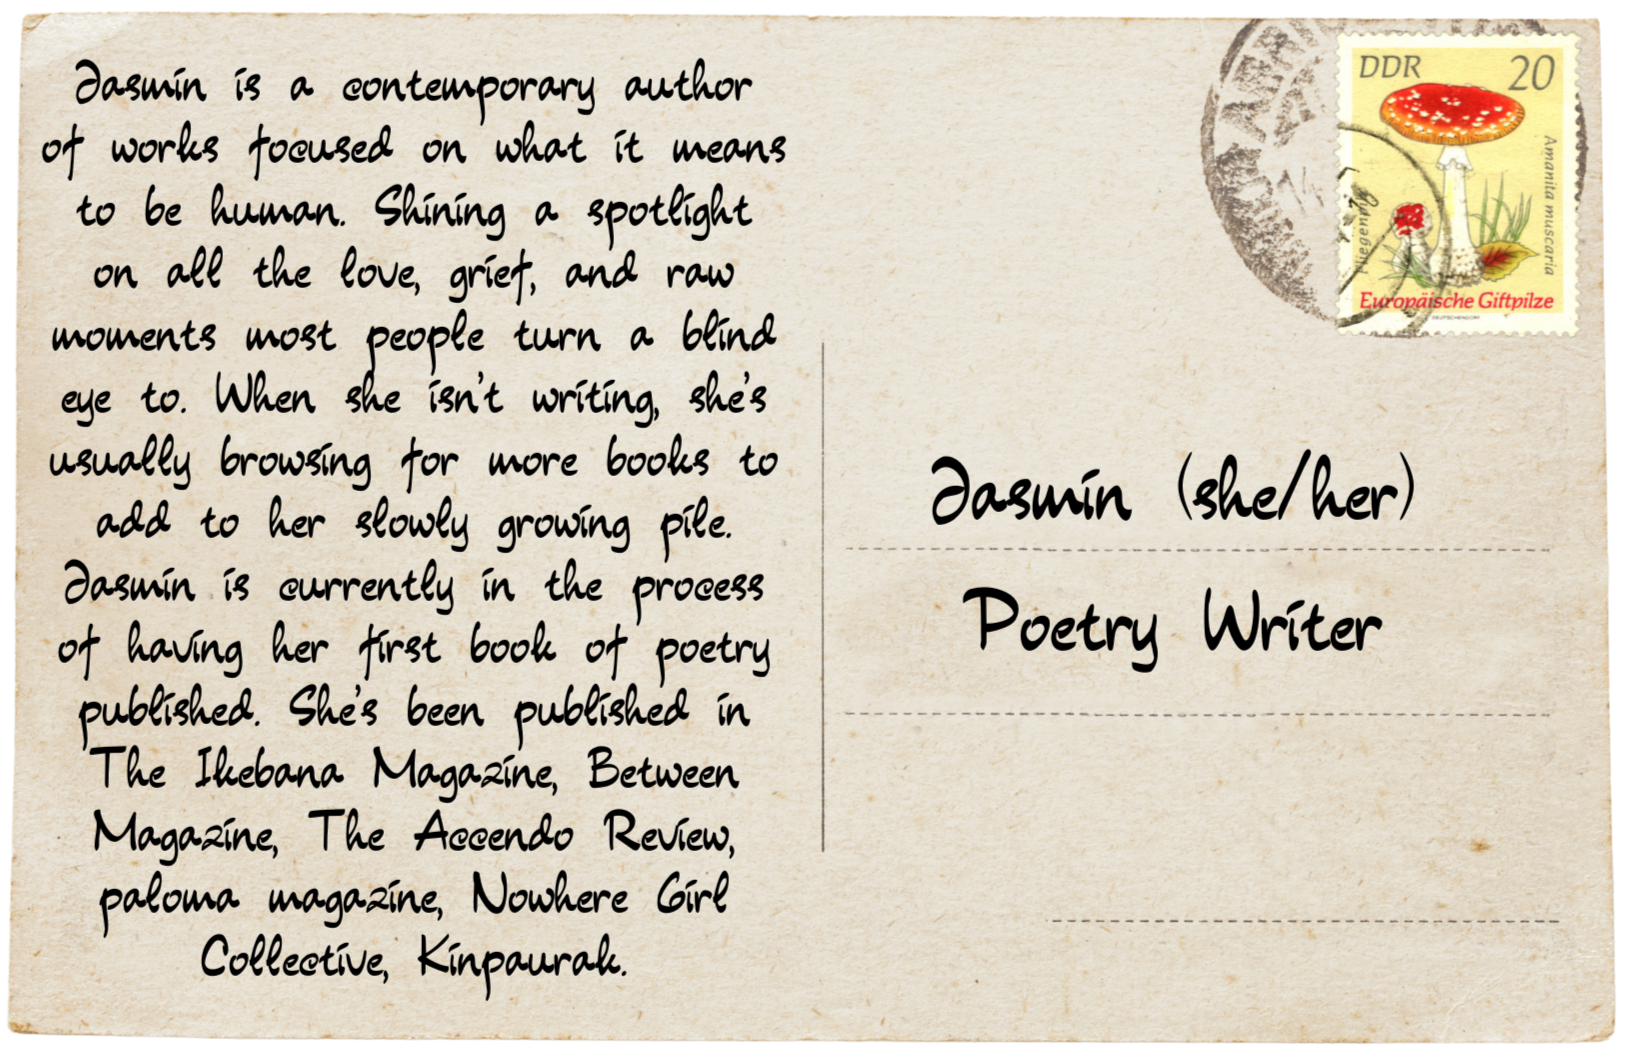 Jasmin is a contemporary author
of works focused on what it means
to be human. Shining a spotlight
on all the love, grief, and raw
moments most people turn a blind
eye to. When she isn't writing, she's
usually browsing for more books to
add to her slowly growing pile.
Jasmin is currently in the process
of having her first book of poetry
published. She's been published in
The Ikebana Magazine, Between
Magazine, The Accendo Review,
paloma magazine, Nowhere Girl
Collective, Kinpaurak.
DDR 20
Amanita muscaria
Europäische Giftpilze
Jasmin (she/her)
Poetry Writer